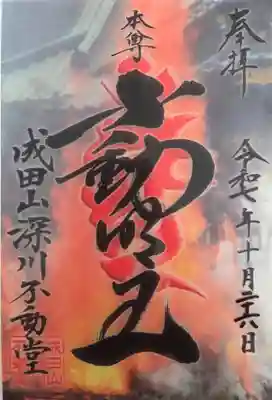 奉拝
令和七年十月二六日
本尊
不動明王
成田山深川不動堂